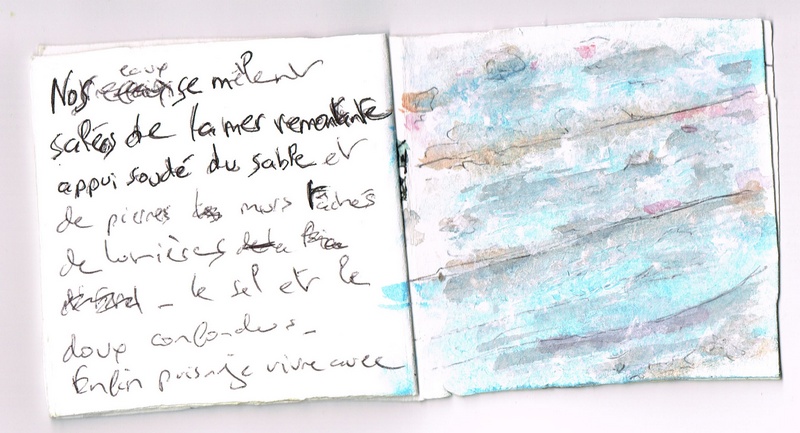 Nos eaux se mêlent
salées de la mer remontante
appui soudé du sable et
de pierres murs tâchés
de lumières
le sel et le
doux confondus -
Enfin puis-je vivre avec